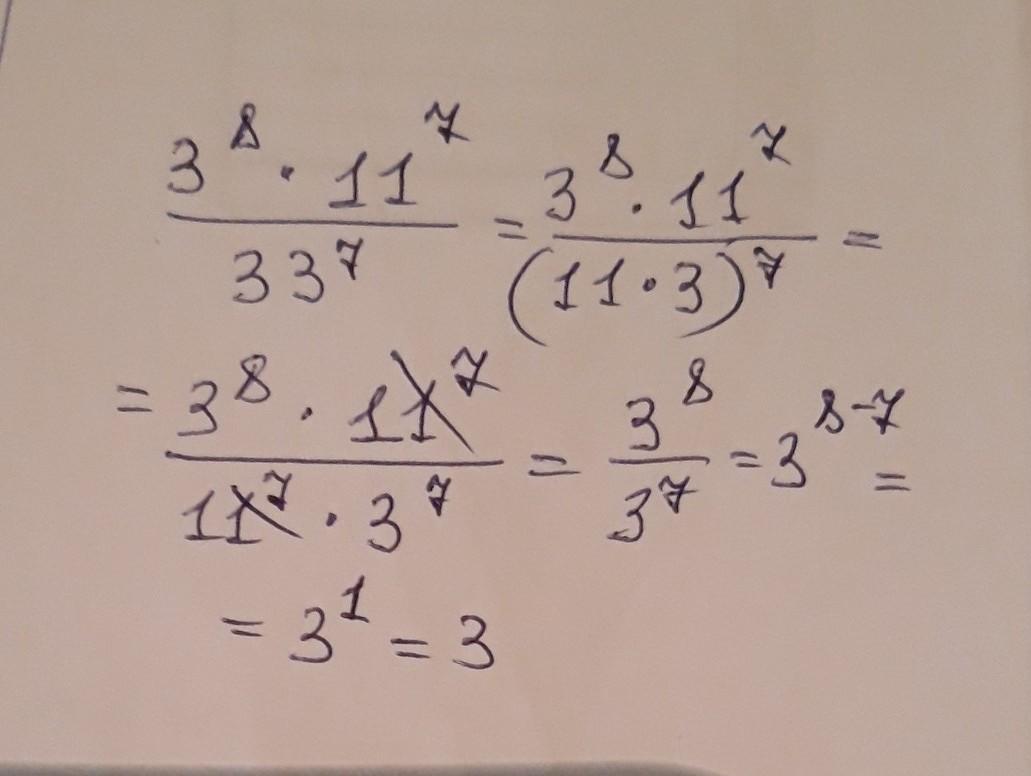 \frac{3^8 · 11^7}{33^7} = \frac{3^8 · 11^7}{(11·3)^7} =
= \frac{3^8 · 11^7}{11^7 · 3^7} = \frac{3^8}{3^7} = 3^{8-7} =
= 3^1 = 3